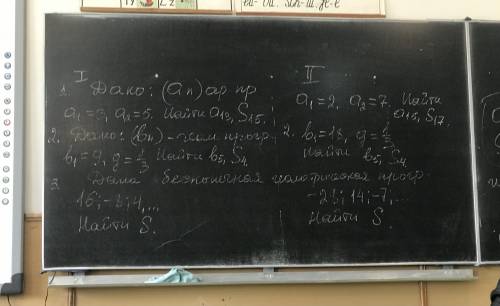 I
1. Дано: (an) ар. пр.
a₁ = 3, a₂ = 5. Найти a₁₃, S₁₅.
2. Дано: (bn) - геом прогр.
b₁ = 9, g = 1/3 Найти b₅, S₄
3. Дана бесконечная геометрическая прогр.
16; -8; 4, ...
Найти S.
II
a₁ = 2, a₂ = 7. Найти
a₁₅, S₁₇.
2. b₁ = 18, g =
Найти b₅, S₄
-28; 14; -7, ...
Найти S.